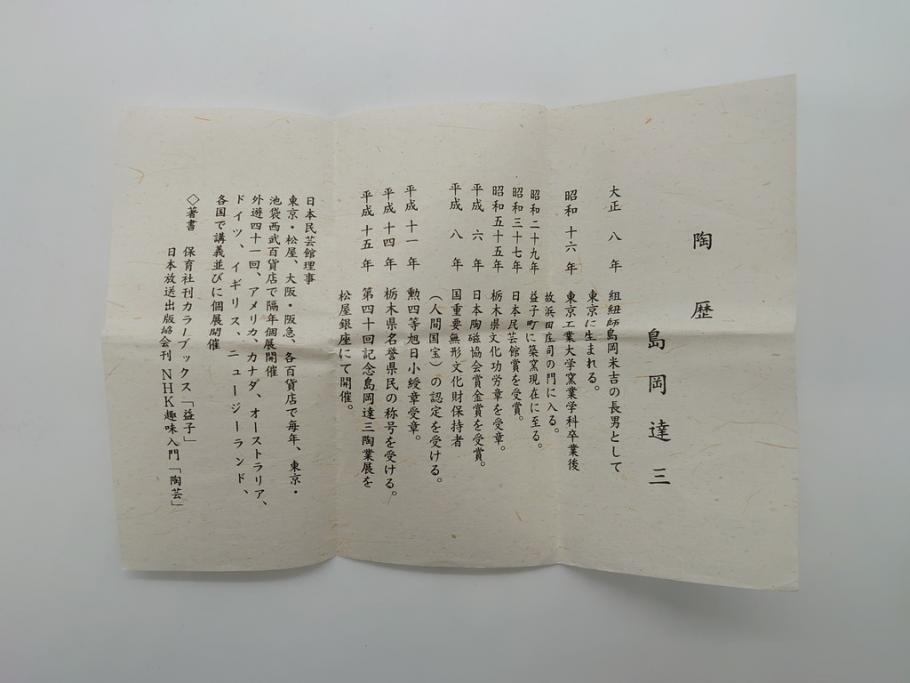 陶歴
島岡達三
大正八年 組紐師島岡米吉の長男として
東京に生まれる。
昭和十六年 東京工業大学窯業学科卒業後
故浜田庄司の門に入る。
昭和二十九年 益子町に築窯現在に至る。
昭和三十七年 日本民芸館賞を受賞。
昭和五十五年 栃木県文化功労章を受章。
平成六年 日本陶磁協会賞金賞を受賞。
平成八年 国重要無形文化財保持者
（人間国宝）の認定を受ける。
平成十一年 勲四等旭日小綬章受章。
平成十四年 栃木県名誉県民の称号を受ける。
平成十五年 第四十回記念島岡達三陶業展を
松屋銀座にて開催。
日本民芸館理事
東京・松屋、大阪・阪急、各百貨店で毎年、東京・
池袋西武百貨店で隔年個展開催
外遊四十一回、アメリカ、カナダ、オーストラリア、
ドイツ、イギリス、ニュージーランド、
各国で講義並びに個展開催
◇著書 保育社刊カラーブックス「益子」
日本放送出版協会刊 NHK趣味入門「陶芸」